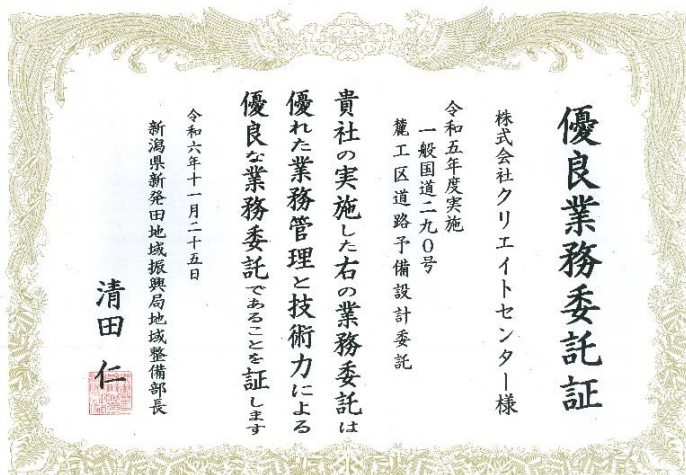 優良業務委託証
株式会社クリエイトセンター様
令和五年度実施
一般国道二九〇号
麓工区道路予備設計委託
貴社の実施した右の業務委託は
優れた業務管理と技術力による
優良な業務委託であることを証します
令和六年十一月二十五日
新潟県新発田地域振興局地域整備部長
清田 仁